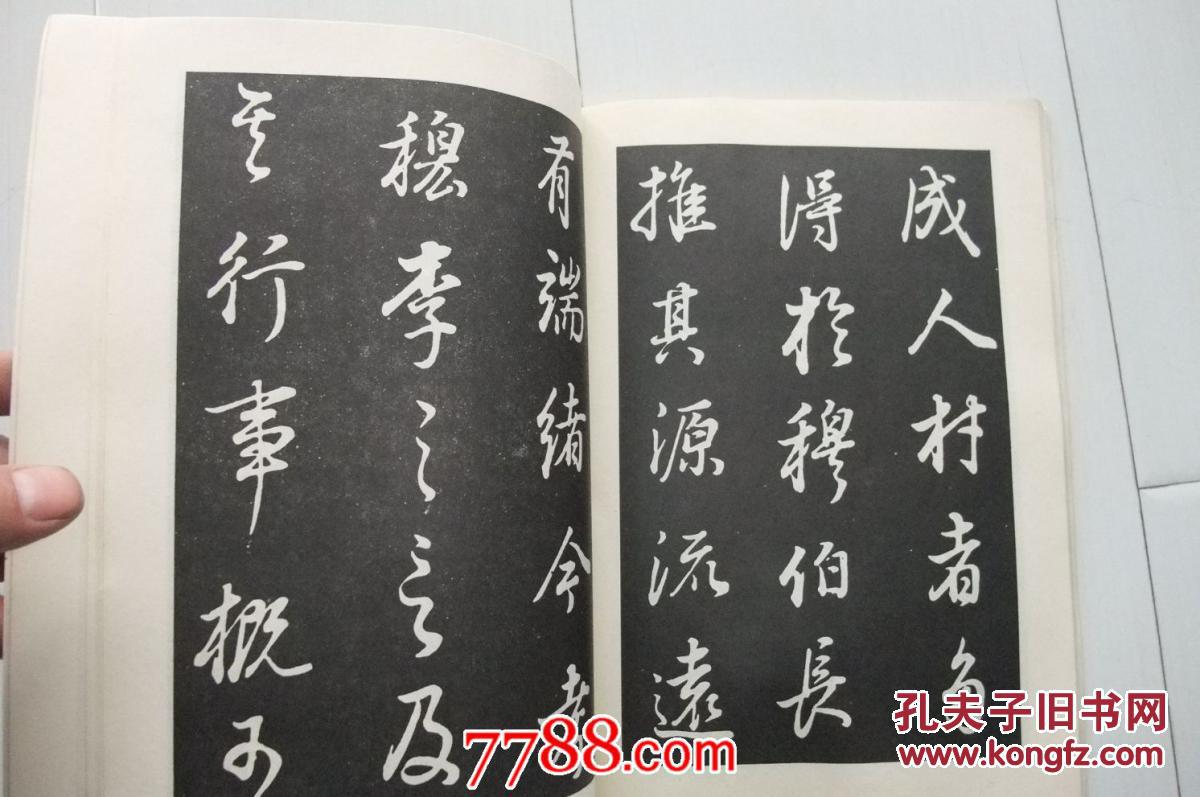 成人材者多
得於穆伯長
推其源流遠
有端緒今
穆李之言及
其行事概可
7788.com
孔夫子旧书网
www.kongfz.com